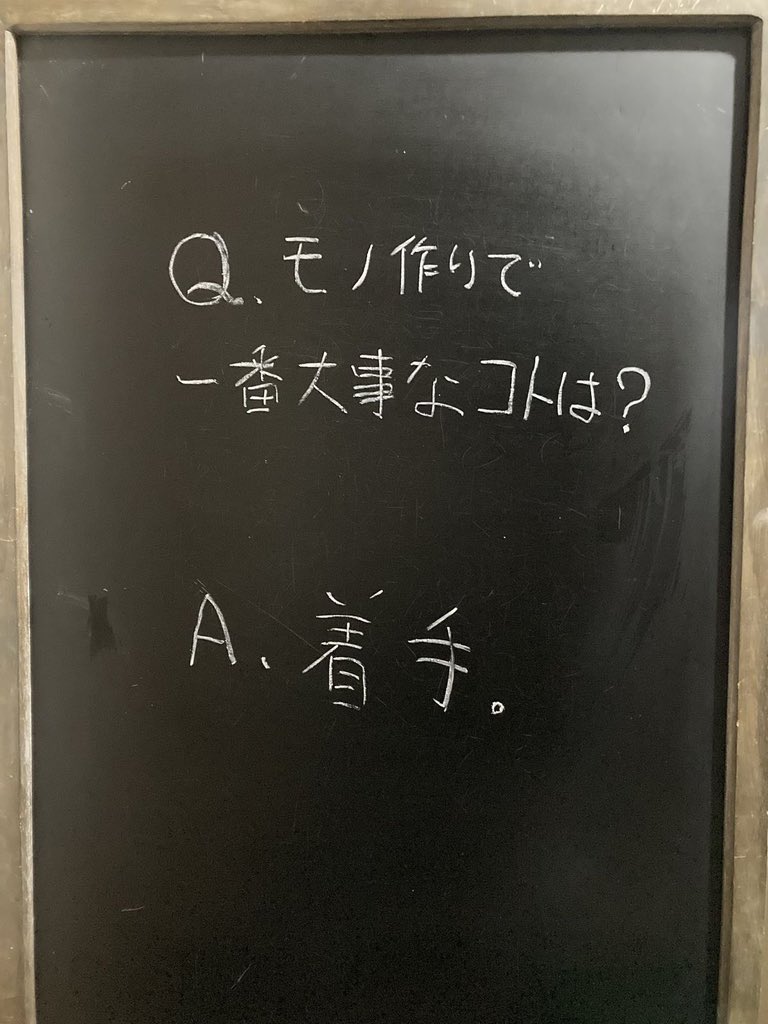 Q、モノ作りで
一番大事なコトは?
A、着手。